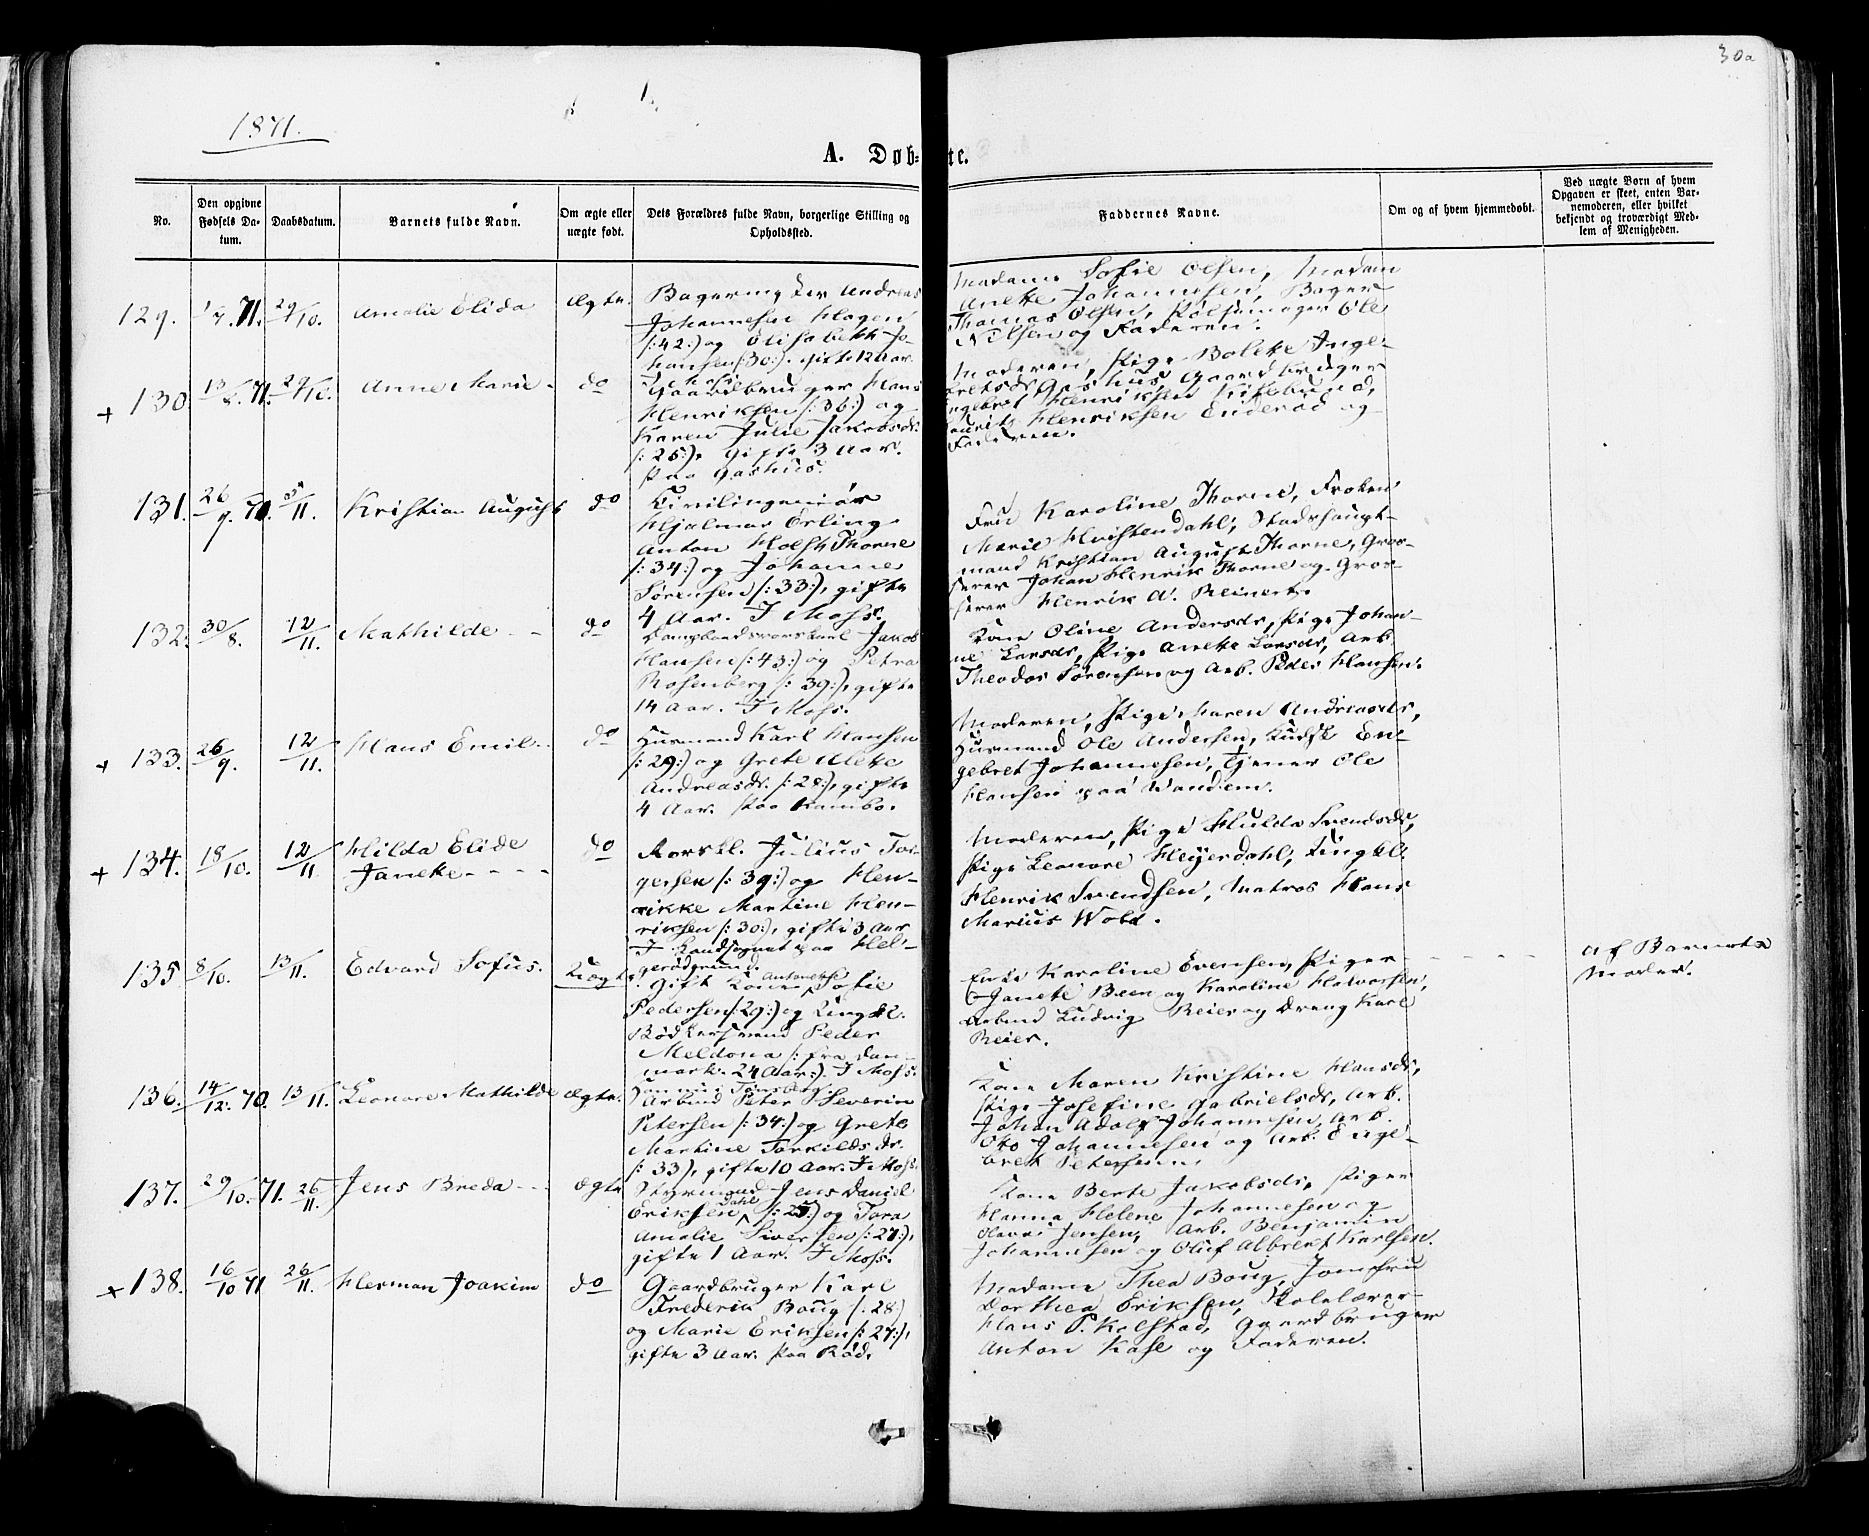 30a
1871.
A. Døb=te.
No.
Den opgivne Fødsels Da-tum.
Daabsdatum.
Barnets fulde Navn.
Om ægte eller uægte født.
Dets Forældres fulde Navn, borgerlige Stilling og Opholdssted.
Faddernes Navne.
Om og af hvem hjemmedøbt.
Ved uægte Børn af hvem Opgaven er skeet, enten Bar-nemoderen, eller hvilket bekjendt og troværdigt Med-lem af Menigheden.
129. 1/7. 71. 29/10. Amalie Elida Ægte.
Bagermester Andreas
Johannesen Hagen
/:42:/ og Elisabeth Jo-
hansen /:30:/. gifte 12 Aar.
I Moss.
Madame Sofie Olsen, Madam
Anette Johannesen, Bager
Thomas Olsen, Pølsemager Ole
Nilsen og Faderen.
+ 130. 13/8. 71. 29/10. Anne Marie do
Gaardbruger Hans
Henriksen /:36:/ og
Karen Julie Jakobsdr.
/:25:/, gifte 3 Aar.
paa Gashus.
Moderen, Pige Bolette Inge-
bretsdr Gashus, Gaardbruger
Engebret Henriksen Kippebund,
Lauritz Henriksen Enderød og
Faderen.
131. 26/9. 71. 5/11. Kristian August do
Civilingeniør
Hjalmar Erling
Anton Holst Thorne
/:34:/ og Johanne
Sørensen /:33:/, gifte
4 Aar. I Moss.
Fru Karoline Thorne, Frøken
Marie Hvistendahl, Stadshaupt-
mand Kristian August Thorne, Gros-
serer Johan Henrik Thorne og Gros-
serer Henrik A. Reinert.
132. 30/8. 12/11. Mathilde do
Jakob
Hansen /:43:/ og Petra
Rosenberg /:39:/, gifte
14 Aar. I Moss.
Kone Oline Andersdr, Pige Johan-
ne Larsdr, Pige Anette Larsdr, Arb.
Theodor Sørensen og Arb. Peder Hansen.
+ 133. 26/9. 12/11. Hans Emil do
Husmand Karl Hansen
/:29:/ og Grete Alette
Andreasdr. /:28:/, gifte
4 Aar. paa Kambo.
Moderen, Pige Karen Andreasdr,
Husmand Ole Andersen, Kudsk En-
gebret Johannesen, Tjener Ole
Hansen paa Wandem.
+ 134. 18/10. 12/11. Hilda Elide
Janette do
Rorskl. Julius Tor-
gersen /:39:/ og Hen-
rikke Martine Hen-
riksen /:30:/, gifte 3 Aar
I Landsognet paa Hel-
gerødgrund.
Moderen, Pige Hulda Svendsdr,
Pige Leonore Heyerdahl, Ungkl.
Henrik Svendsen, Matros Hans
Marius Wold.
135 8/10. 13/11. Edvard Sofus. Uægte.
Gift Kone Antonette Sofie
Pedersen /:29:/ og Ungkl.
Bødkersvend Peder
Meldona /: fra Dan-
mark. 24 Aar:/. I Moss.
Enke Karoline Evensen, Piger
Janete Been og Karoline Halvorsen,
Arbmd Ludvig Reier og Dreng Karl
Reier.
af Barnets
Moder.
136. 14/12. 70. 13/11. Leonore Mathilde Ægte.
Arbmd Peter Severin
Petersen /:34:/ og Grete
Martine Torkildsdr.
/:33/, gifte 10 Aar. I Moss.
Kone Maren Kristine Hansdr,
Pige Josefine Gabrielsdr, Arb.
Johan Adolf Johannesen, Arb.
Otto Johannesen og Arb. Enge-
bret Petersen.
137. 29/10. 71. 26/11. Jens Breda Ægte
Styrmand Jens Daniel
Eriksen Dahl /:25:/ og Tora
Amalie Siversen /:27:/,
gifte 1 Aar. I Moss.
Kone Berte Jakobsdr, Piger
Hanna Helene Johannesen og
Jensen, Arb. Benjamin
Johannesen og Oluf Albret Karlsen.
+ 138. 16/10 71 26/11. Herman Joakim do
Gaardbruger Karl
Frederik Boug /:28:/
og Marie Eriksen /:27:/,
gifte 3 Aar. paa Rød.
Madame Thea Boug, Jomfru
Dorthea Eriksen, Skolelærer
Hans P. Kolstad, Gaardbruger
Anton Kase og Faderen.